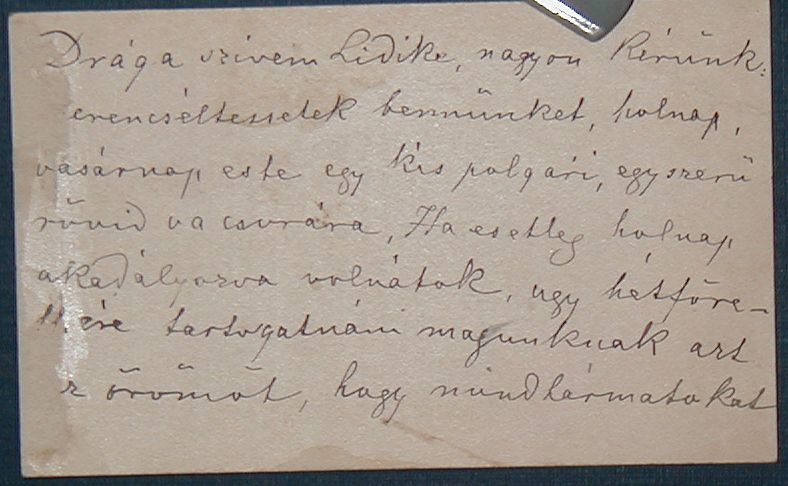 Drága szívem Lidike, nagyon kérünk:
erencséltessetek bennünket, holnap,
vasárnap este egy kis polgári, egyszerü
rövid vacsorára, Ha esetleg holnap
akadályozva volnátok, ugy hétföre-
tartogatnám magunknak azt
z örömöt, hogy mindhármatokat